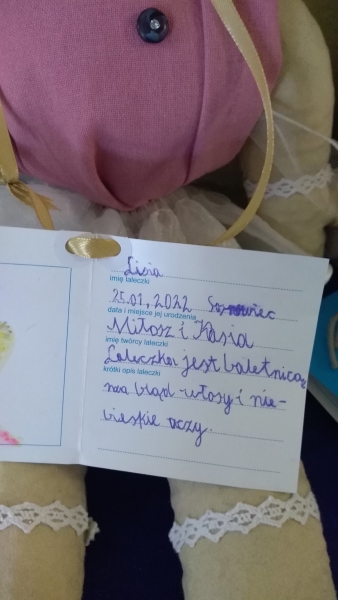 Lisia
imię laleczki
25.01.2022 Sosnowiec
data i miejsce jej urodzenia
Miłosz i Kasia
imię twórcy laleczki
Laleczka jest baletnicą,
krótki opis laleczki
ma bląd-włosy i nie-
bieskie oczy.